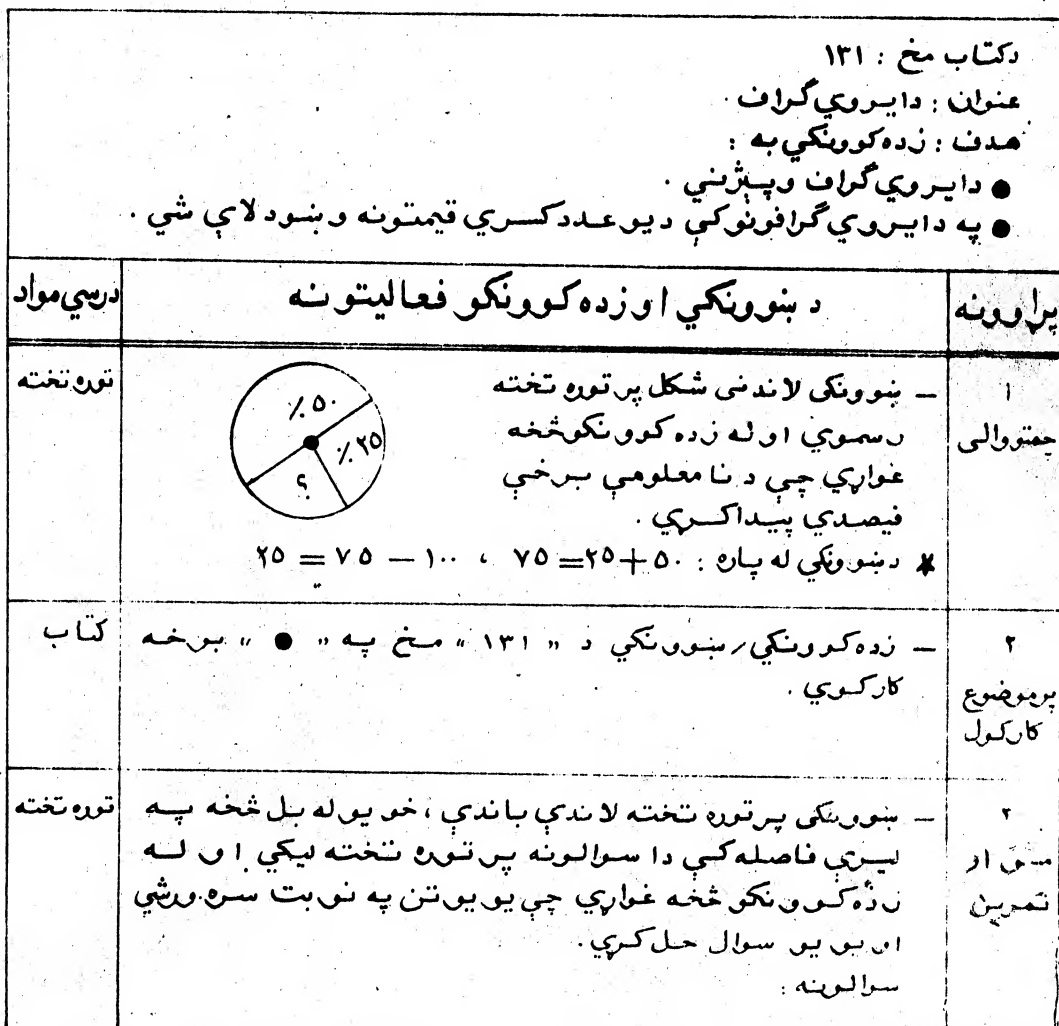 دکتاب مخ : ۱۳۱
عنوان : دايروي گراف .
هدف : زده کوونکي به :
● دايروي گراف وپيژني .
● په دايروي گرافونوکې ديو عددکسري قيمتونه وښودلای شي .
پړاوونه
د ښوونکي اوزده کوونکو فعاليتونه
درسي مواد
۱
چمتووالی
– ښوونکی لاندنی شکل پر توره تخته
رسموي او له زده کوونکوڅخه
غواړي چې د نامعلومې برخې
فيصدي پيداکړي .
٪۵۰
٪۲۵
؟
* دښوونکي له پاره : ۵۰+۲۵=۷۵ ، ۱۰۰ – ۷۵ = ۲۵
توره تخته
۲
پرموضوع
کارکول
– زده کوونکي/ښوونکي د " ۱۳۱ " مخ په " ● " برخه
کارکوي .
کتاب
۳
او
تمرين
– ښوونکی پرتوره تخته لاندې باندې ، خو يوله بل څخه په
ليرې فاصله کې دا سوالونه پر توره تخته ليکي او له
زده کوونکو څخه غواړي چې يو يوتن په نوبت سره ورشي
او يو يو سوال حل کړي .
سوالونه :
توره تخته